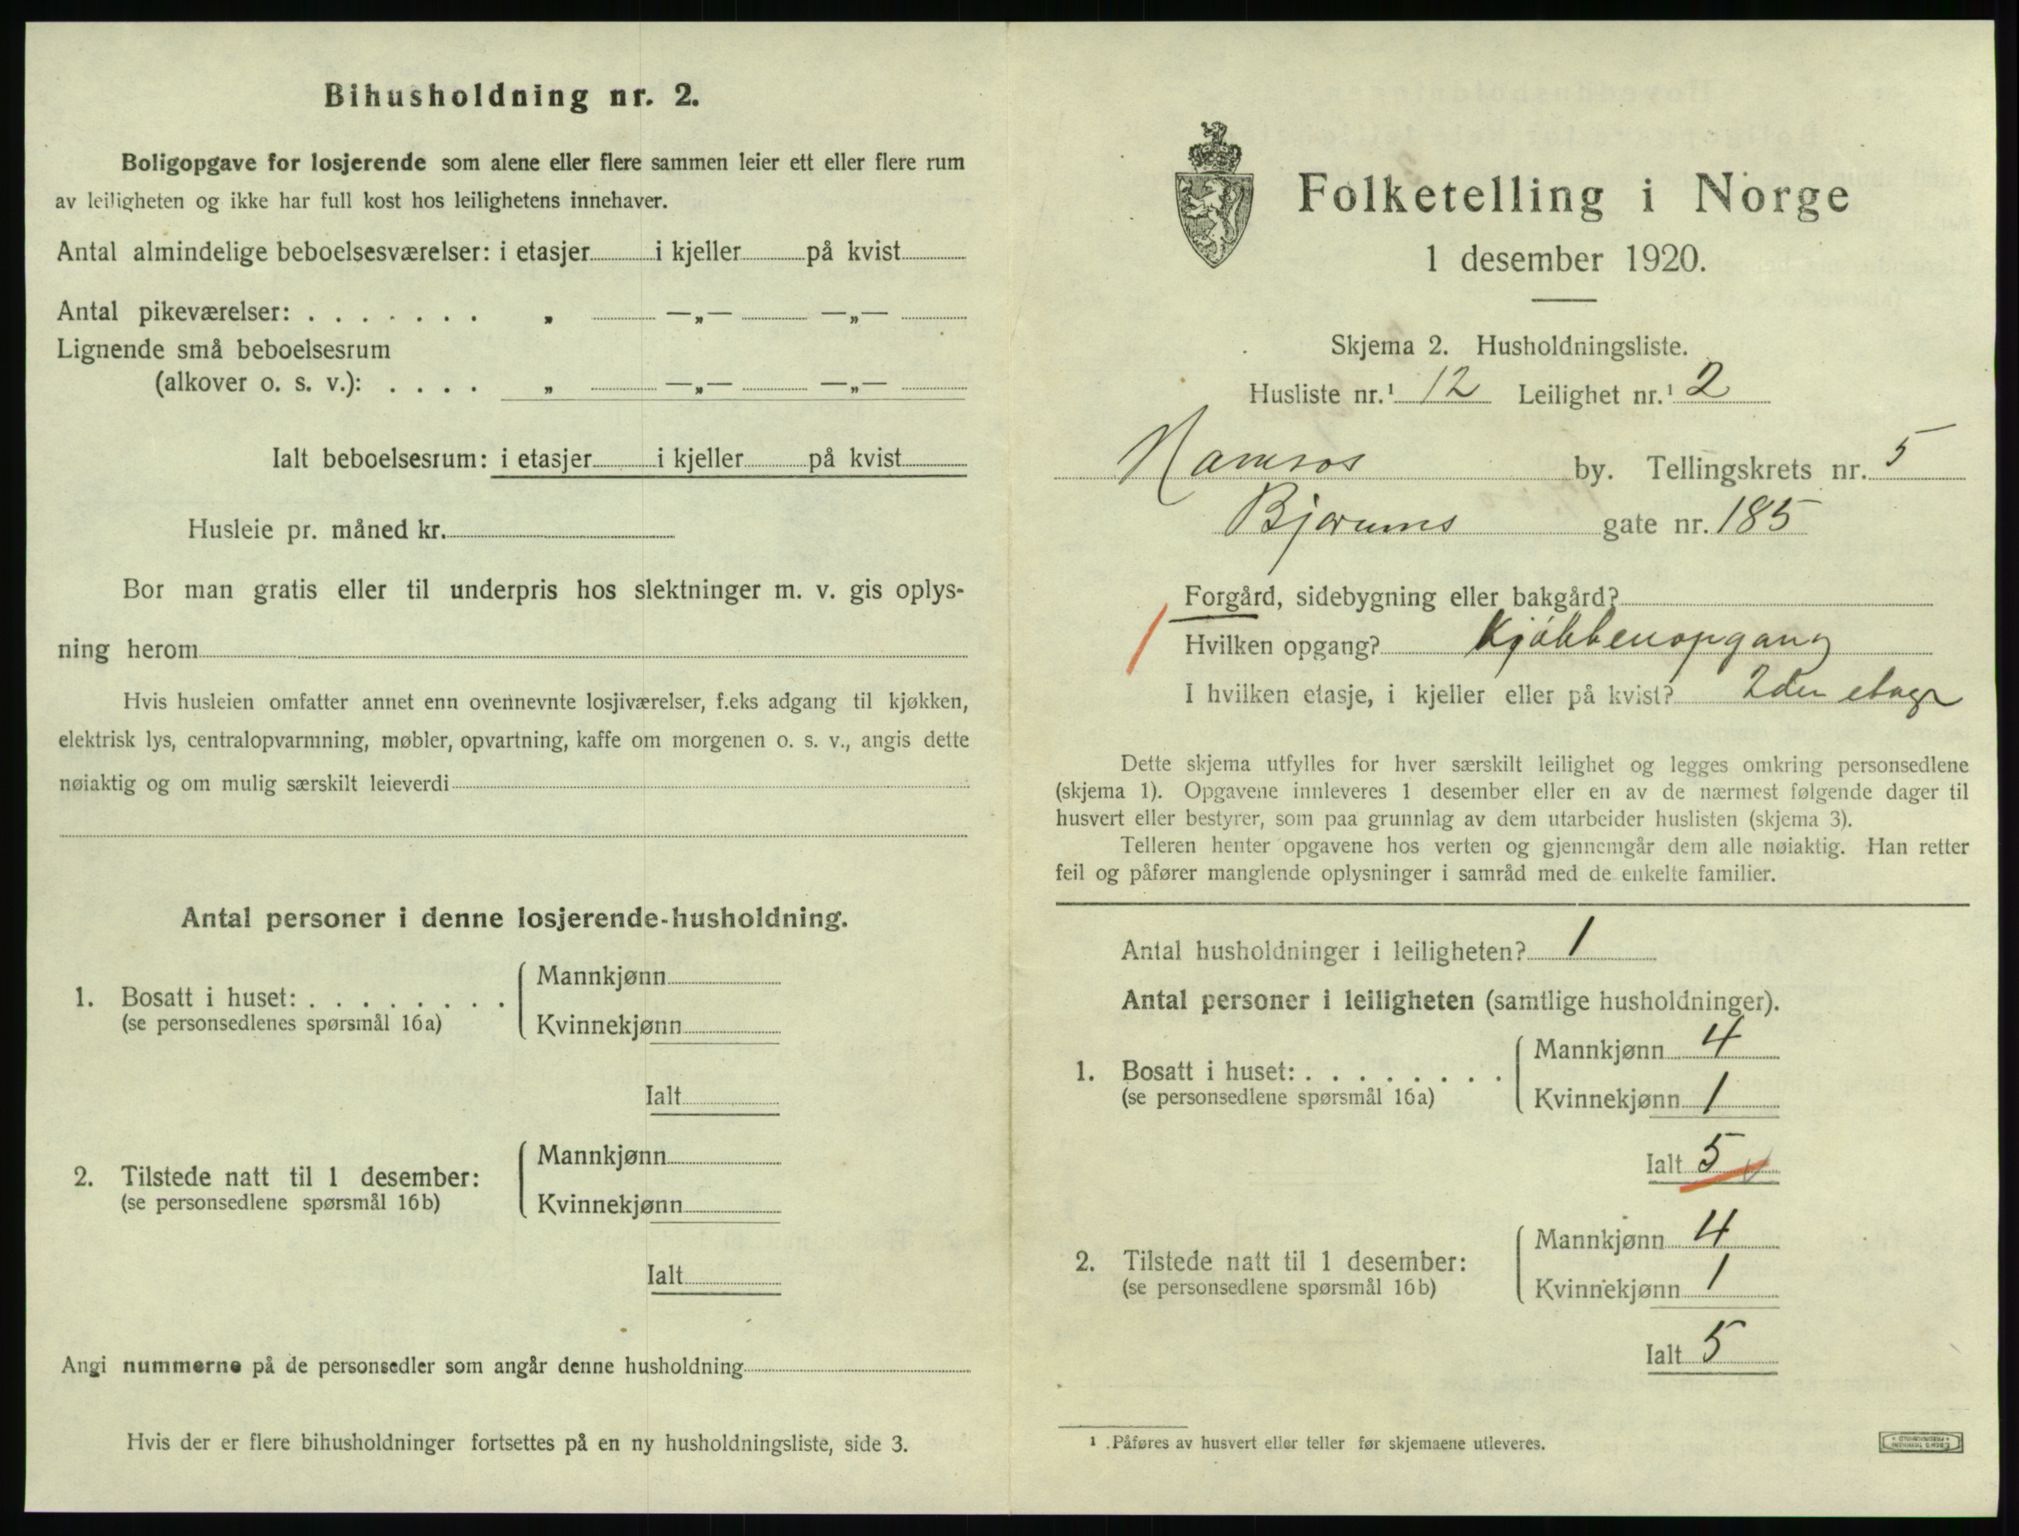 Bihusholdning nr. 2.
Boligopgave for losjerende som alene eller flere sammen leier ett eller flere rum
av leiligheten og ikke har full kost hos leilighetens innehaver.
Antal almindelige beboelsesværelser: i etasjer i kjeller på kvist
Antal pikeværelser: . . . . . . . „ —„— —„—
Lignende små beboelsesrum
(alkover o. s. v.): . . . . „ —„— —„—
Ialt beboelsesrum: i etasjer i kjeller på kvist
Husleie pr. måned kr.
Bor man gratis eller til underpris hos slektninger m. v. gis oplys-
ning herom
Hvis husleien omfatter annet enn ovennevnte losjiværelser, f.eks adgang til kjøkken,
elektrisk lys, centralopvarmning, møbler, opvartning, kaffe om morgenen o. s. v., angis dette
nøiaktig og om mulig særskilt leieverdi
Antal personer i denne losjerende-husholdning.
1. Bosatt i huset: . . . . . . . .
(se personsedlenes spørsmål 16a)
Mannkjønn
Kvinnekjønn
Ialt
2. Tilstede natt til 1 desember:
(se personsedlene spørsmål 16b)
Mannkjønn
Kvinnekjønn
Ialt
Angi nummerne på de personsedler som angår denne husholdning
Hvis der er flere bihusholdninger fortsettes på en ny husholdningsliste, side 3.
Folketelling i Norge
1 desember 1920.
Skjema 2. Husholdningsliste.
Husliste nr.¹ 12 Leilighet nr.¹ 2
Namsos by. Tellingskrets nr. 5
Bjørums gate nr. 185
Forgård, sidebygning eller bakgård?
Hvilken opgang? Kjøkkenopgang
I hvilken etasje, i kjeller eller på kvist? 2den etage
Dette skjema utfylles for hver særskilt leilighet og legges omkring personsedlene
(skjema 1). Opgavene innleveres 1 desember eller en av de nærmest følgende dager til
husvert eller bestyrer, som paa grunnlag av dem utarbeider huslisten (skjema 3).
Telleren henter opgavene hos verten og gjennemgår dem alle nøiaktig. Han retter
feil og påfører manglende oplysninger i samråd med de enkelte familier.
Antal husholdninger i leiligheten? 1
Antal personer i leiligheten (samtlige husholdninger).
1. Bosatt i huset: . . . . . . . .
(se personsedlene spørsmål 16a)
Mannkjønn 4
Kvinnekjønn 1
Ialt 5
2. Tilstede natt til 1 desember:
(se personsedlene spørsmål 16b)
Mannkjønn 4
Kvinnekjønn 1
Ialt 5
¹ .Påføres av husvert eller teller før skjemaene utleveres.